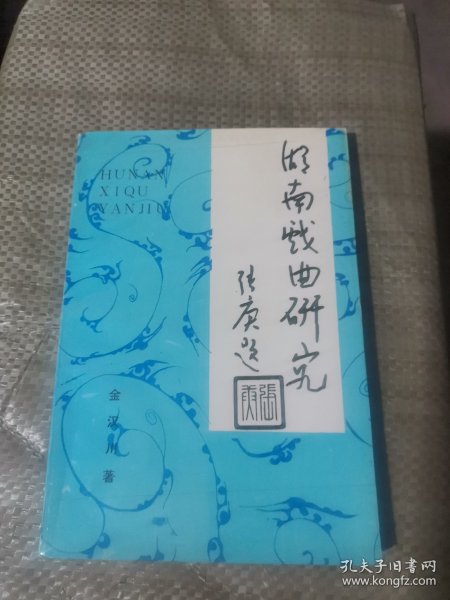 HUNAN
XIQU
YANJIU
湖南戏曲研究
张庚题
张庚
金汉川著
孔夫子旧书网
www.kongfz.com